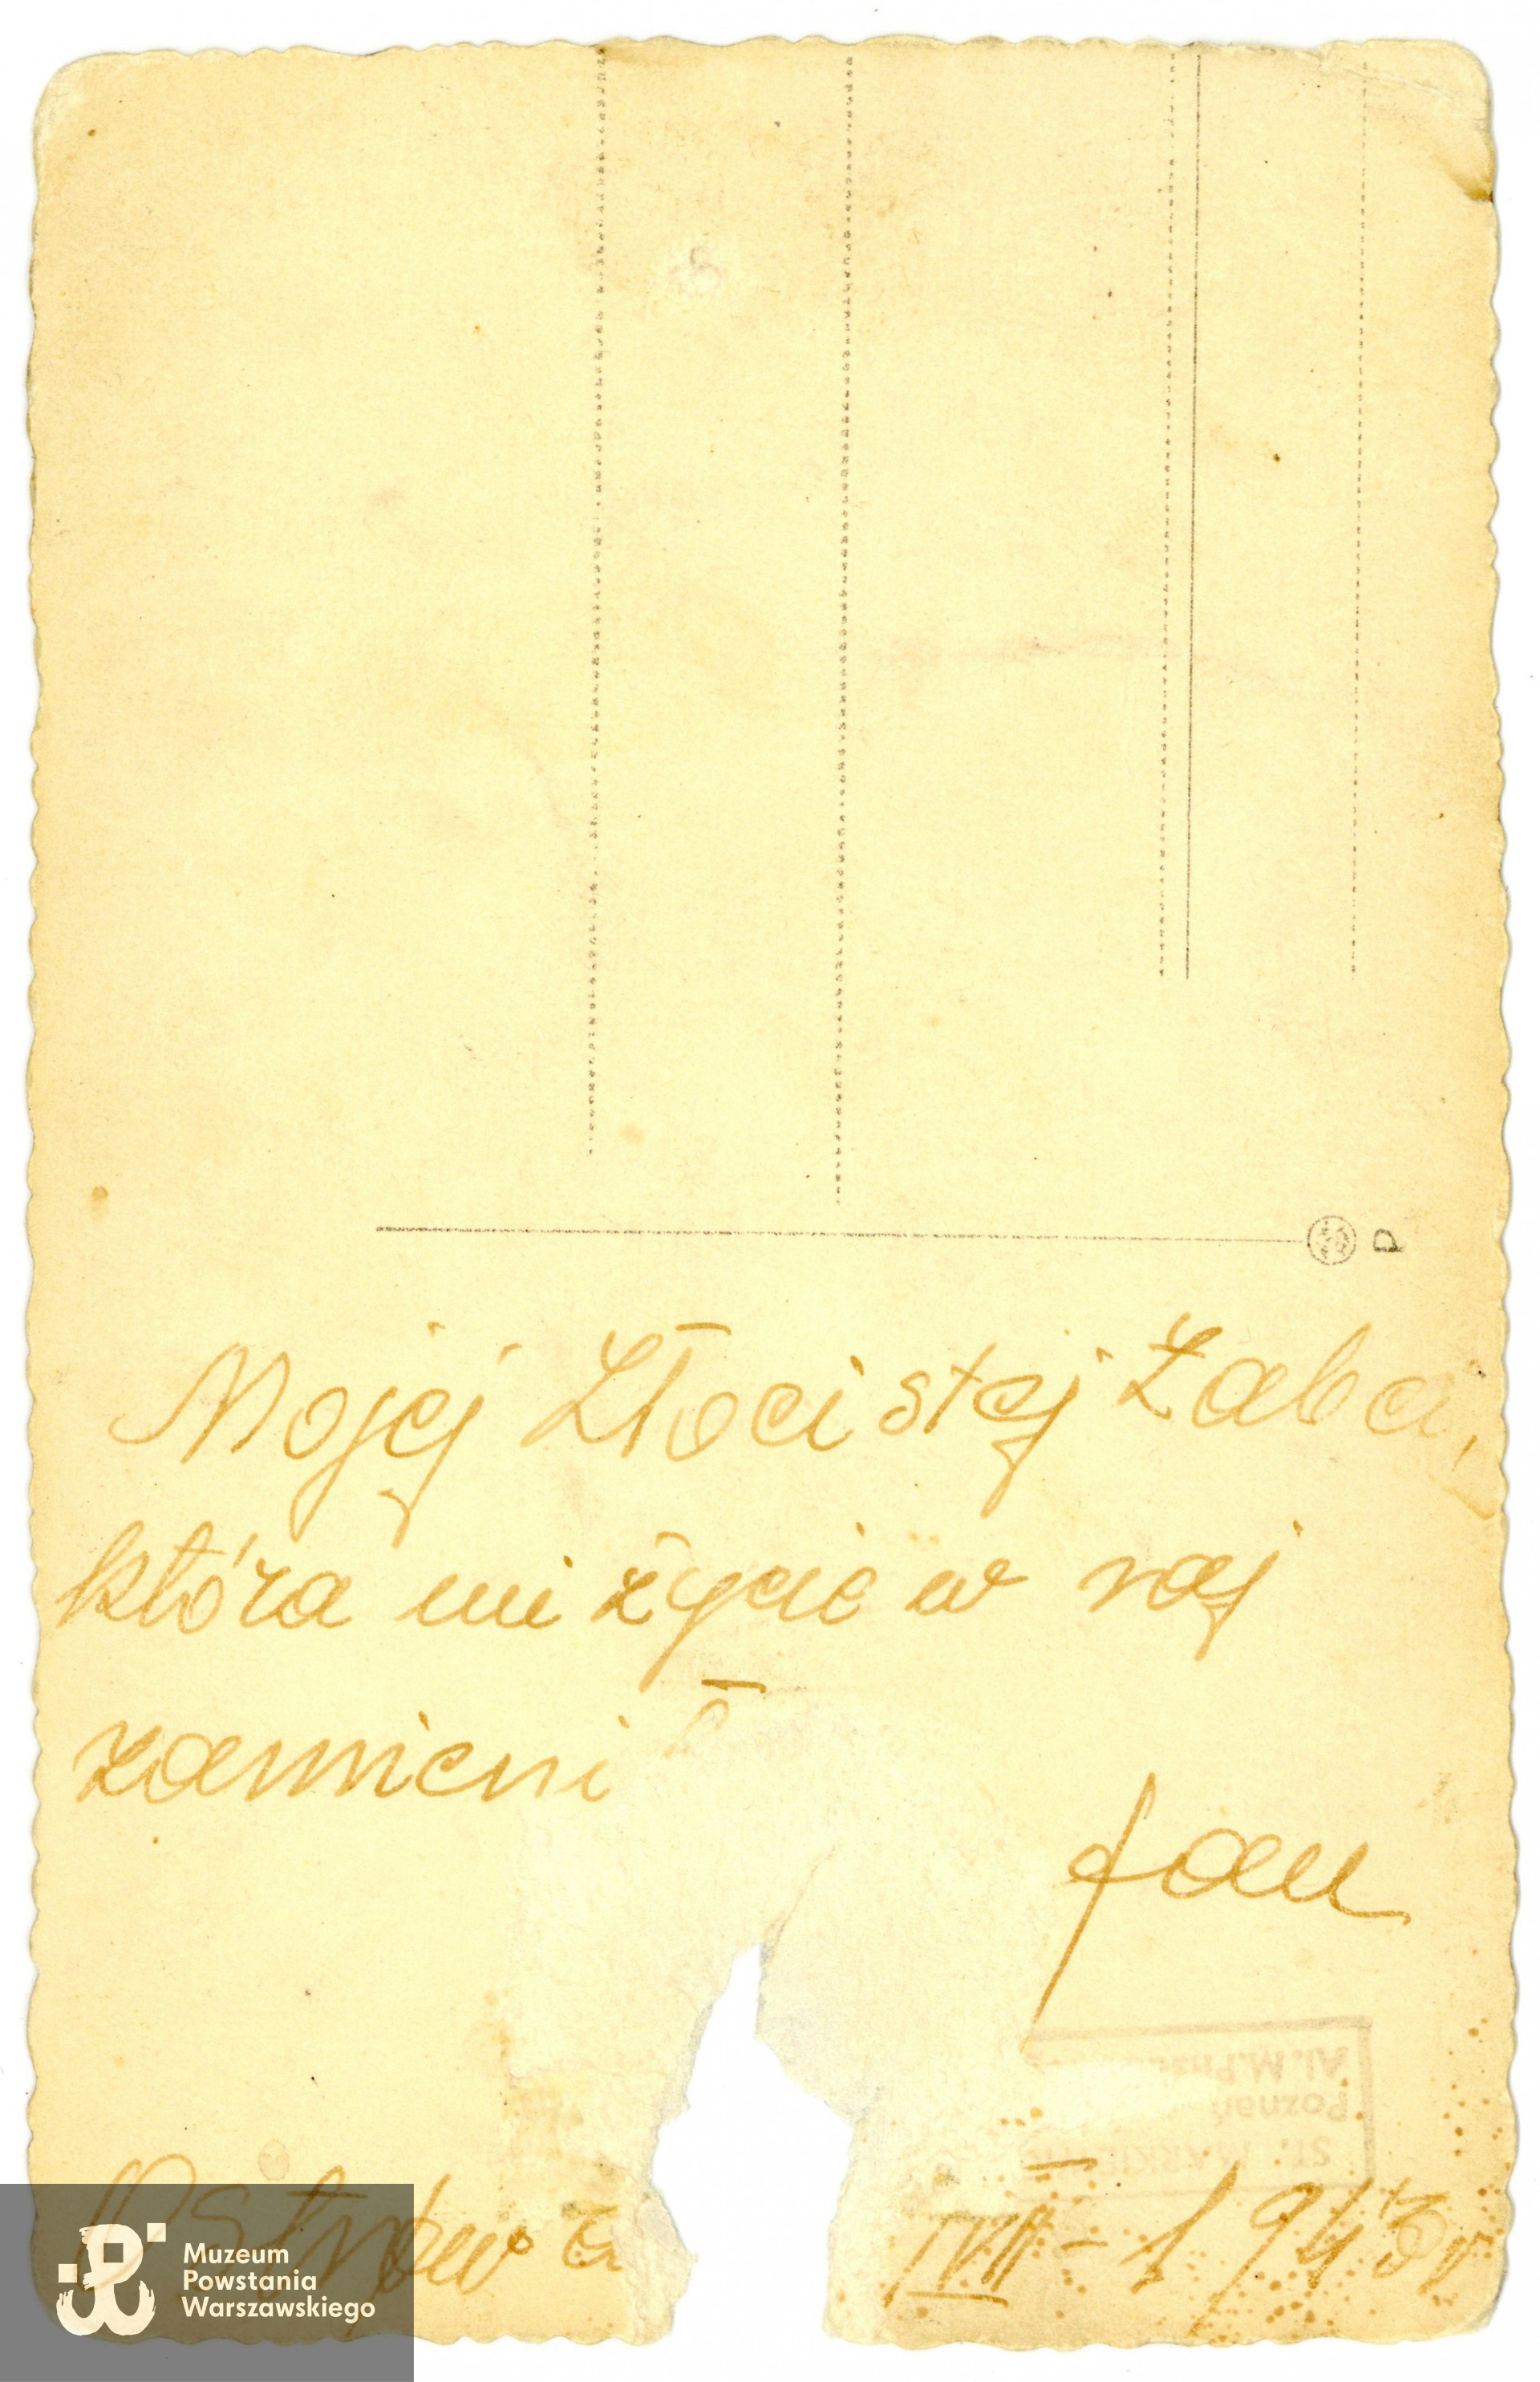 Mojej Złocistej Żabci,
która mi życie w raj
zamieni
Jan
Al. M. Piłs
Poznań
ST. MARKIEWI
Ostrów
VII - 1943 r
P
Muzeum
Powstania
Warszawskiego